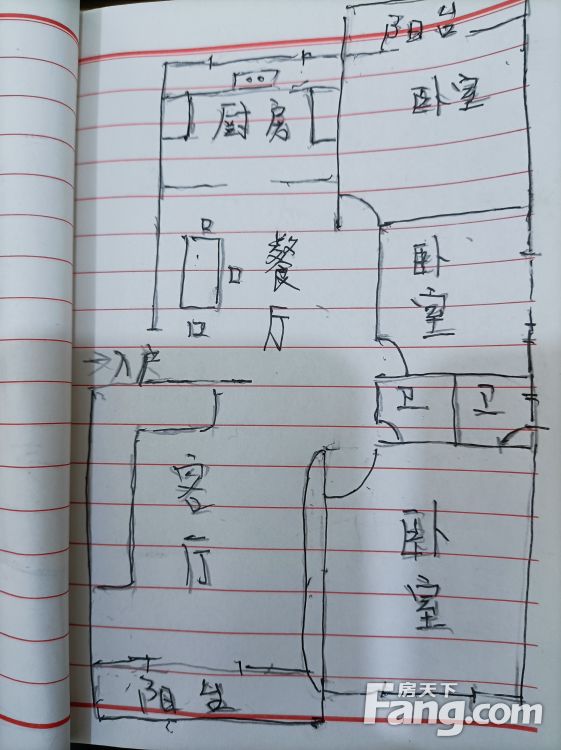 阳台
卧室
厨房
餐厅
卧室
入户
卫
卫
客厅
卧室
阳台
房天下
Fang.com